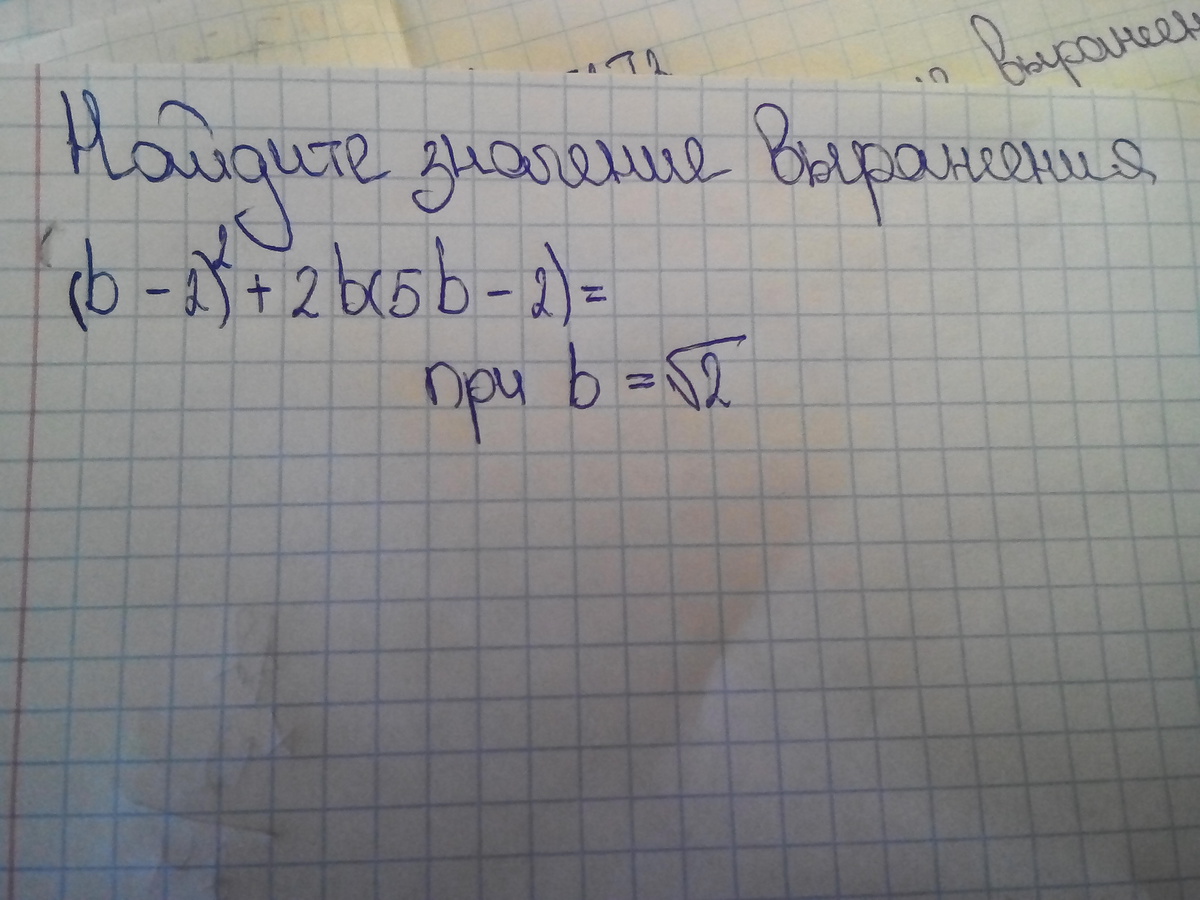 выражен
Найдите значение выражения
(b - 2)² + 2b(5b - 2) =
при b = √2